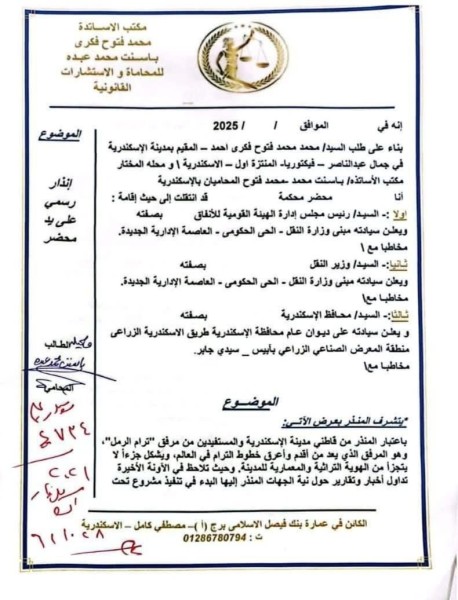 مكتب الاساتذة
محمد فتوح فكرى
باسنت محمد عبده
للمحاماة و الاستشارات
القانونية
إنه في الموافق / / 2025
الموضوع
بناء على طلب السيد/ محمد محمد فتوح فكرى احمد – المقيم بمدينة الإسكندرية
في جمال عبدالناصر – فيكتوريا- المنتزة اول – الاسكندرية \ و محله المختار
مكتب الأساتذه/ باسنت محمد -محمد فتوح المحاميان بالإسكندرية
أنا محضر محكمة قد انتقلت إلى حيث إقامة :
إنذار
رسمي
على يد
محضر
اولا :- السيد/ رئيس مجلس إدارة الهيئة القومية للأنفاق بصفته
ويعلن سيادته مبنى وزارة النقل - الحى الحكومى - العاصمة الإدارية الجديدة.
مخاطبا مع\
ثانيا :- السيد/ وزير النقل بصفته
ويعلن سيادته مبنى وزارة النقل - الحى الحكومى - العاصمة الإدارية الجديدة.
مخاطبا مع\
ثالثا :- السيد/ محافظ الإسكندرية بصفته
و يعلن سيادته على ديوان عام محافظة الإسكندرية طريق الاسكندرية الزراعى
منطقة المعرض الصناعي الزراعي بأبيس _ سيدي جابر.
مخاطبا مع\
الطالب
المحامي
الموضوع
*يتشرف المنذر بعرض الأتي:
باعتبار المنذر من قاطني مدينة الإسكندرية والمستفيدين من مرفق "ترام الرمل"،
وهو المرفق الذي يعد من أقدم وأعرق خطوط الترام في العالم، ويشكل جزءاً لا
يتجزأ من الهوية التراثية والمعمارية للمدينة. وحيث تلاحظ في الآونة الأخيرة
تداول أخبار وتقارير حول نية الجهات المنذر إليها البدء في تنفيذ مشروع تحت
٤٧٣٤
الكائن في عمارة بنك فيصل الاسلامى برج (أ ) – مصطفي كامل – الاسكندرية
ت : 01286780794